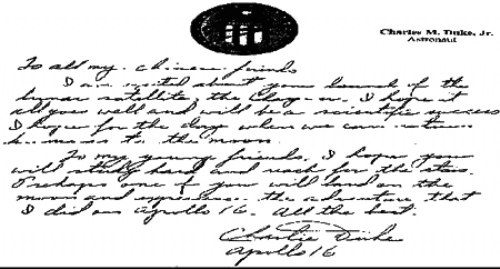 Charles M. Duke, Jr.
Astronaut
To all my Chinese friends
I am excited about your launch of the
lunar satellite, the Chang-e. I hope it
all goes well and will be a scientific success
I hope for the day when we can return
humans to the moon.
To my young friends, I hope you
will study hard and reach for the stars.
Perhaps one of you will land on the
moon and experience the adventure that
I did on Apollo 16. All the best.
Charlie Duke
Apollo 16